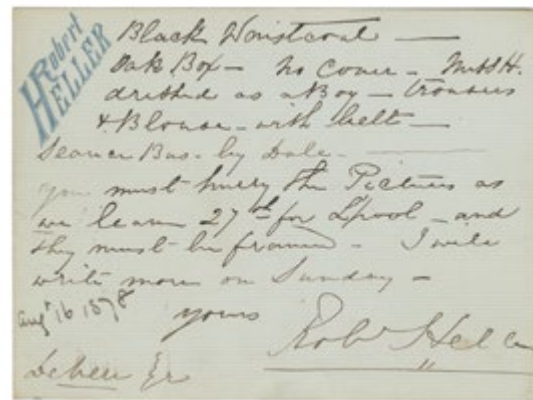 Robert
HELLER
Black Waistcoat —
Oak Box — No Cover — Miss H.
dressed as a Boy — trousers
& Blouse — with belt —
Seance Bus. by Dale —
you must hurry the Pictures as
we leave 27th for Lpool — and
they must be framed — I will
write more on Sunday —
Augt 16 1878
yours
Robt Heller